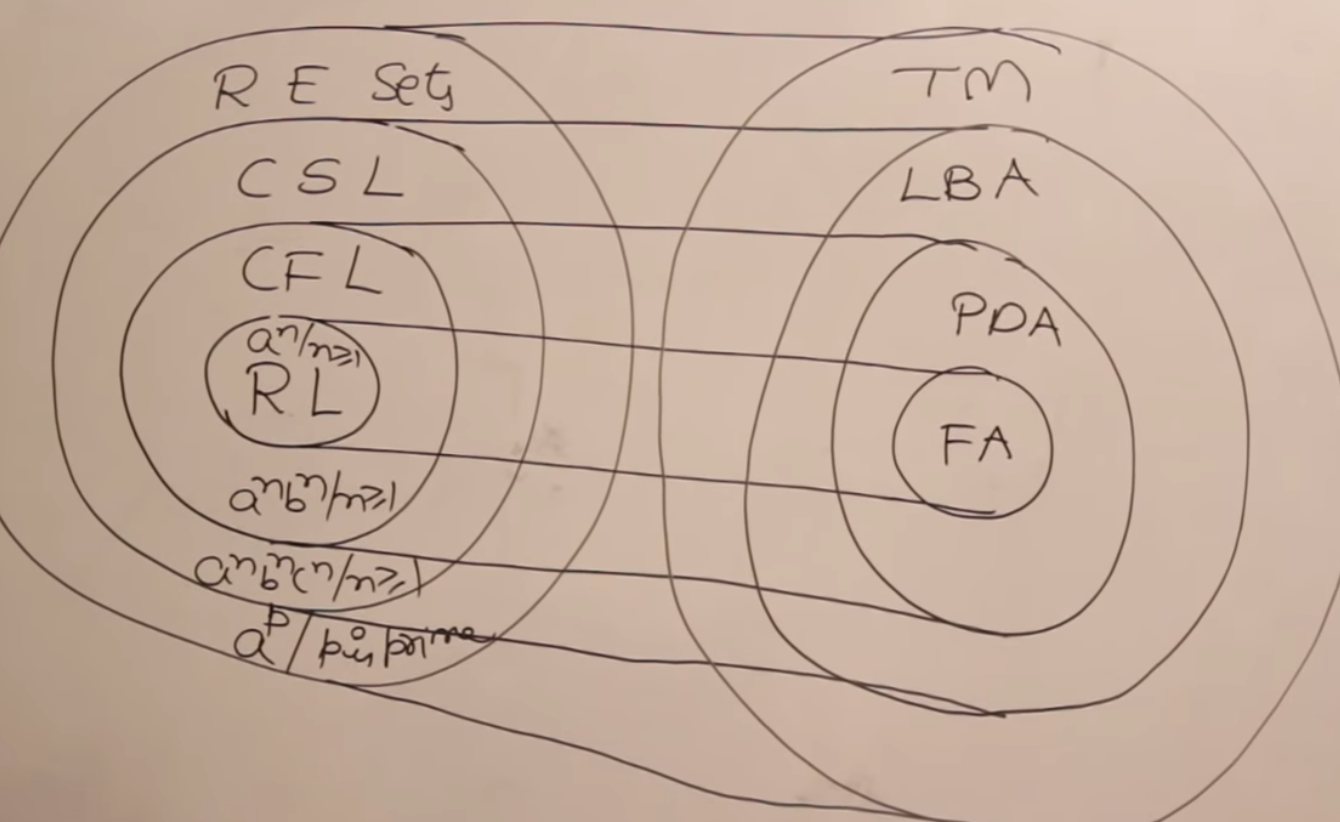 R E Sets
C S L
C F L
aⁿ/n≥1
R L
aⁿbⁿ/n≥1
aⁿbⁿcⁿ/n≥1
aᵖ/p is prime
TM
LBA
PDA
FA